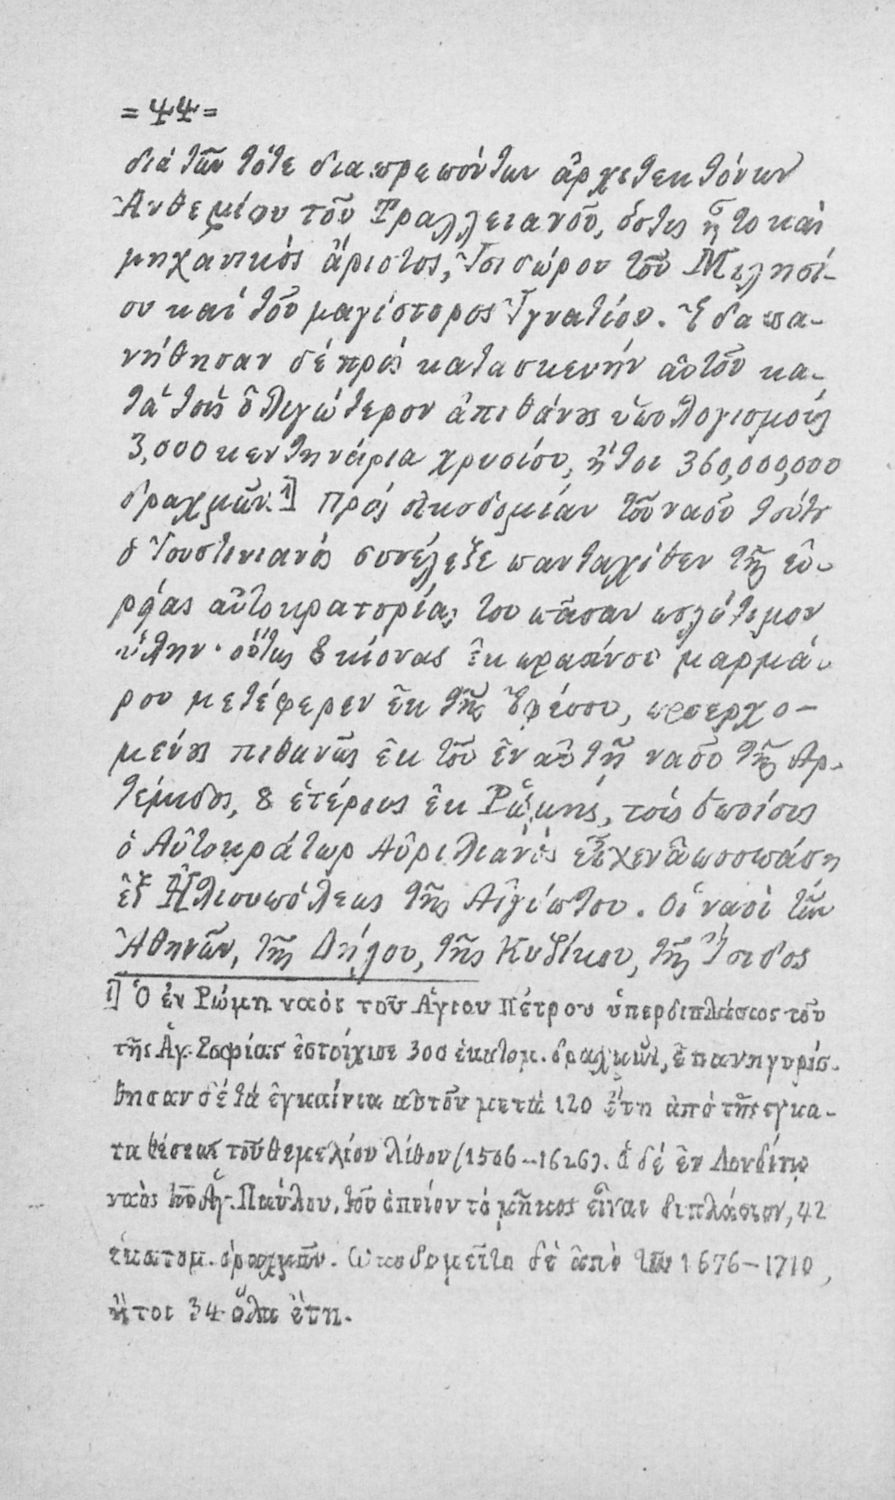 = 44 =
διὰ τῶν τότε διαπρεπόντων ἀρχιτεκτόνων
Ἀνθεμίου τοῦ Τραλλειανοῦ, ὅστις ἦτο καὶ
μηχανικὸς ἄριστος, Ἰσιδώρου τοῦ Μιλησί-
ου καὶ τοῦ μαγίστορος Ἰγνατίου. Ἐδαπα-
νήθησαν δὲ πρὸς κατασκευὴν αὐτοῦ κα-
τὰ τοὺς ὀλιγώτερον ἀπιθάνους ὑπολογισμοὺς
3,000 κεντηνάρια χρυσίου, ἤτοι 360,000,000
δραχμῶν. 1] Πρὸς οἰκοδομίαν τοῦ ναοῦ τούτου
ὁ Ἰουστινιανὸς συνέλεξε πανταχόθεν τῆς εὐ-
ρείας αὐτοκρατορίας του πᾶσαν πολύτιμον
ὕλην· οὕτως 8 κίονας ἐκ πρασίνου μαρμά-
ρου μετέφερεν ἐκ τῆς Ἐφέσου, προερχο-
μένους πιθανῶς ἐκ τοῦ ἐν αὐτῇ ναοῦ τῆς Ἀρ-
τέμιδος, 8 ἑτέρους ἐκ Ῥώμης, τοὺς ὁποίους
ὁ Αὐτοκράτωρ Αὐρηλιανὸς εἶχεν ἀποσπάσῃ
ἐξ Ἡλιουπόλεως τῆς Αἰγύπτου. Οἱ ναοὶ τῶν
Ἀθηνῶν, τῆς Δήλου, τῆς Κυζίκου, τῆς Ἴσιδος
1] Ὁ ἐν Ῥώμῃ ναὸς τοῦ Ἁγίου Πέτρου ὑπερδιπλάσιος τοῦ
τῆς Ἁγ. Σοφίας ἐστοίχισε 300 ἑκατομ. δραχμῶν, ἐπανηγυρίσ-
θησαν δὲ τὰ ἐγκαίνια αὐτοῦ μετὰ 120 ἔτη ἀπὸ τῆς εγκα-
ταθέσεως τοῦ θεμελίου λίθου (1506-1626). ὁ δὲ ἐν Λονδίνῳ
ναὸς τοῦ Ἁγ. Παύλου, τοῦ ὁποίου τὸ μῆκος εἶναι διπλάσιον, 42
ἑκατομ. δραχμῶν. Ὠκοδομεῖτο δὲ ἀπὸ τῶν 1676-1710,
ἤτοι 34 ὅλα ἔτη.